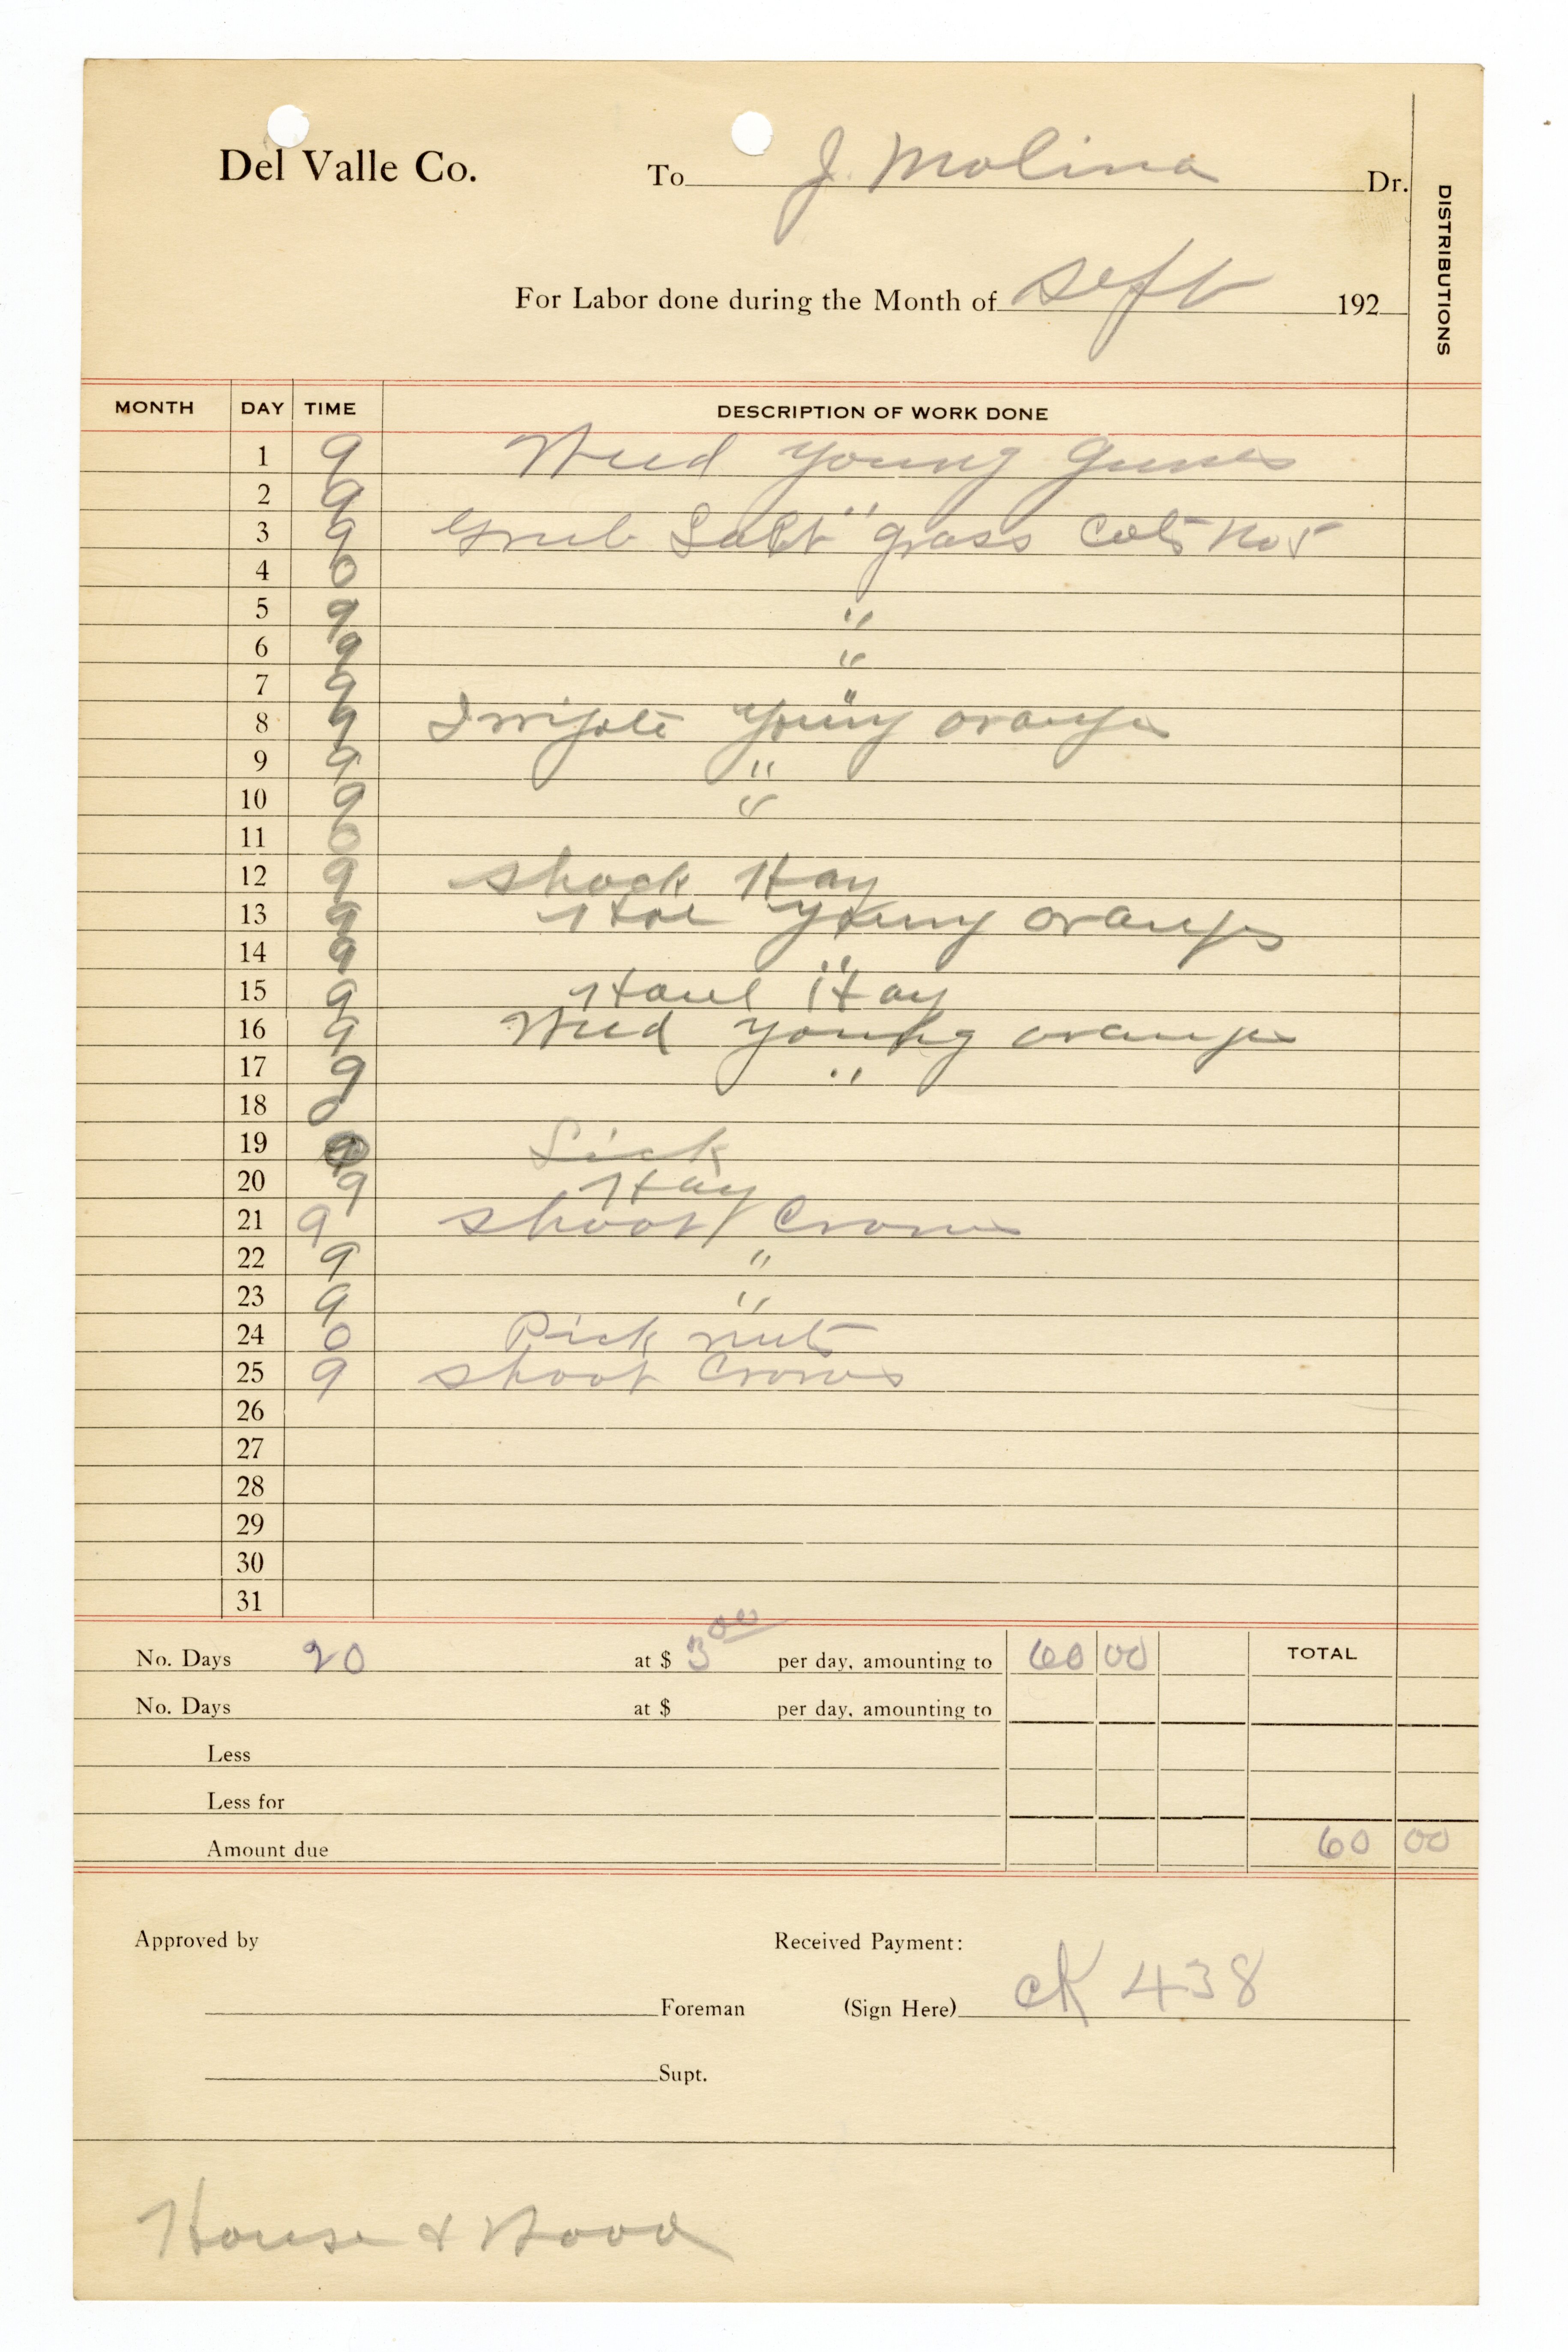 Del Valle Co. To J. Molina Dr.
DISTRIBUTIONS
For Labor done during the Month of Sept 192
MONTH DAY TIME DESCRIPTION OF WORK DONE
1 9 Weed young
2 9 "
3 9 Grub Salt grass Cots No 5
4 0
5 9 "
6 9 "
7 9 "
8 9 Irrigate young oranges
9 9 "
10 9 "
11 0
12 9 Shock Hay
13 9 Hoe young oranges
14 9 "
15 9 Haul Hay
16 9 Weed young oranges
17 9 "
18 0
19 Sick
20 9 Hay
21 9 Shoot Crows
22 9 "
23 9 "
24 0 Pick nuts
25 9 Shoot Crows
26
27
28
29
30
31
No. Days 20 at $ 3 00 per day, amounting to 60 00 TOTAL
No. Days at $ per day, amounting to
Less
Less for
Amount due 60 00
Approved by Received Payment:
Foreman (Sign Here) CK 438
Supt.
House & Wood